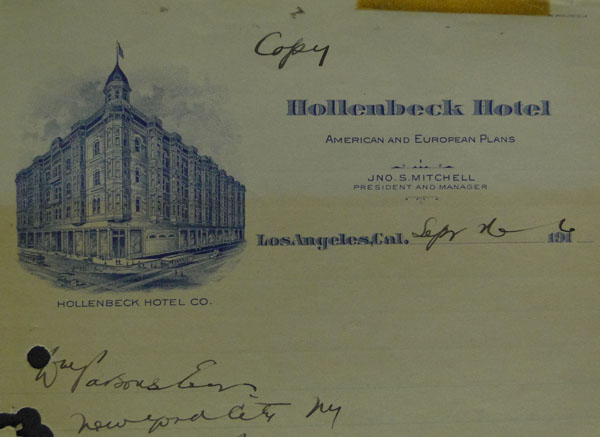 Copy
Hollenbeck Hotel
AMERICAN AND EUROPEAN PLANS
JNO. S. MITCHELL
PRESIDENT AND MANAGER
Los Angeles, Cal. Sept 26 1916
HOLLENBECK HOTEL CO.
Wm Parsons Esq
New York City NY